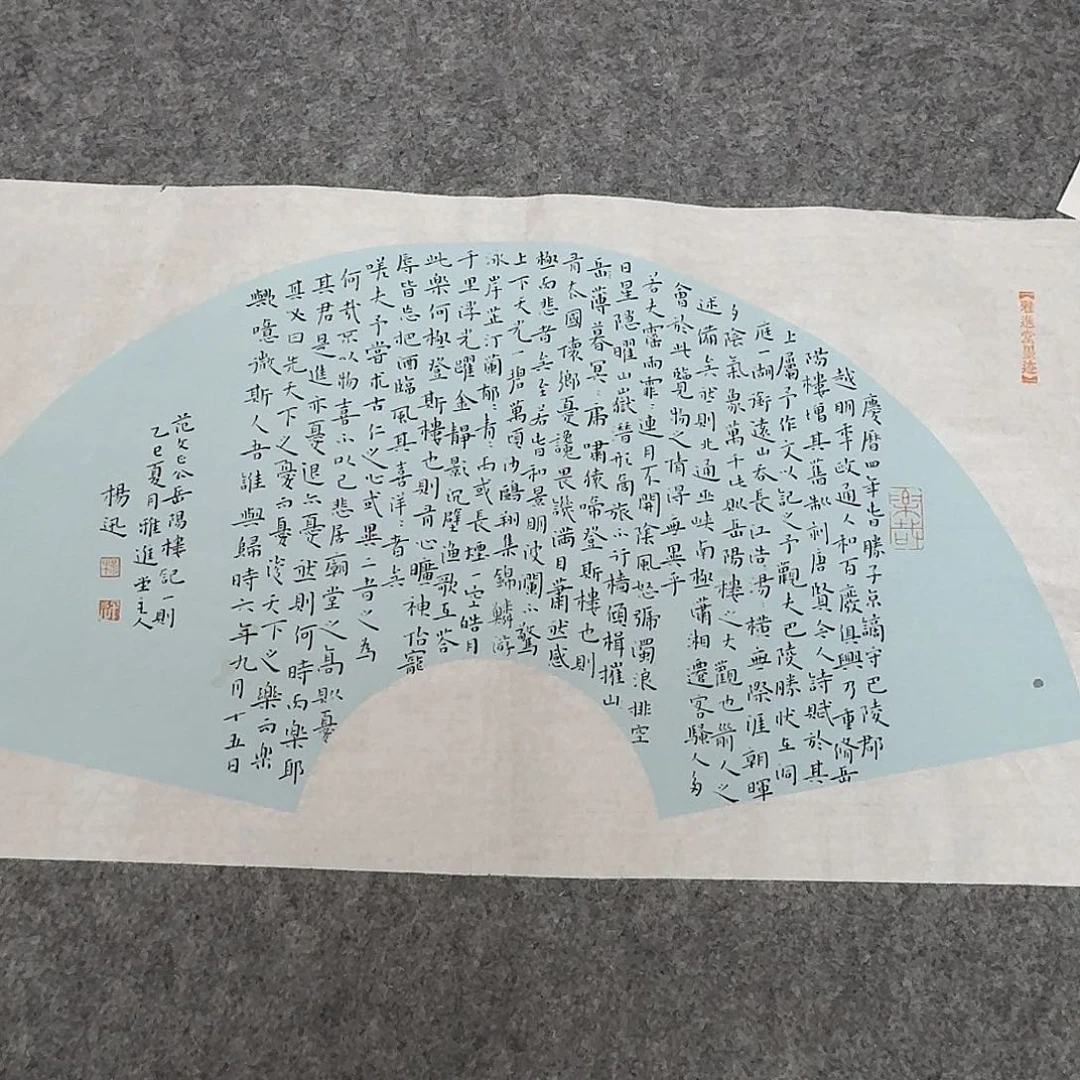 慶曆四年春滕子京謫守巴陵郡
越明年政通人和百廢俱興乃重脩岳
陽樓增其舊制刻唐賢今人詩賦於其
上屬予作文以記之予觀夫巴陵勝狀在洞
庭一湖銜遠山吞長江浩浩湯湯橫無際涯朝暉
夕陰氣象萬千此則岳陽樓之大觀也前人之
述備矣然則北通巫峽南極瀟湘遷客騷人多
會於此覽物之情得無異乎
若夫霪雨霏〻連月不開陰風怒號濁浪排空
日星隱曜山嶽潛形商旅不行檣傾楫摧山
岳薄暮冥〻虎嘯猿啼登斯樓也則
有去國懷鄉憂讒畏譏滿目蕭然感
極而悲者矣至若春和景明波瀾不驚
上下天光一碧萬頃沙鷗翔集錦鱗游
泳岸芷汀蘭郁〻青〻而或長煙一空皓月
千里浮光躍金靜影沉璧漁歌互答
此樂何極登斯樓也則有心曠神怡寵
辱皆忘把酒臨風其喜洋〻者矣
嗟夫予嘗求古仁人之心或異二者之為
何哉不以物喜不以己悲居廟堂之高則憂
其君是進亦憂退亦憂然則何時而樂耶
其必曰先天下之憂而憂後天下之樂而樂
歟噫微斯人吾誰與歸時六年九月十五日
范文正公岳陽樓記一則
乙巳夏月雅進堂主人
楊迅
【雅進堂墨迹】